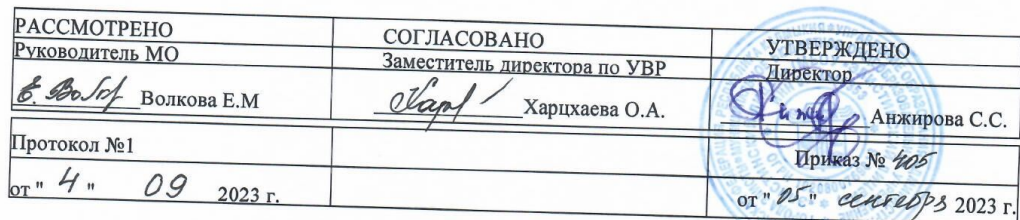 РАССМОТРЕНО
Руководитель МО
Волкова Е.М
Протокол №1
от " 4 " 09 2023 г.
СОГЛАСОВАНО
Заместитель директора по УВР
Харцхаева О.А.
УТВЕРЖДЕНО
Директор
Анжирова С.С.
Приказ № 405
от " 05 " сентября 2023 г.